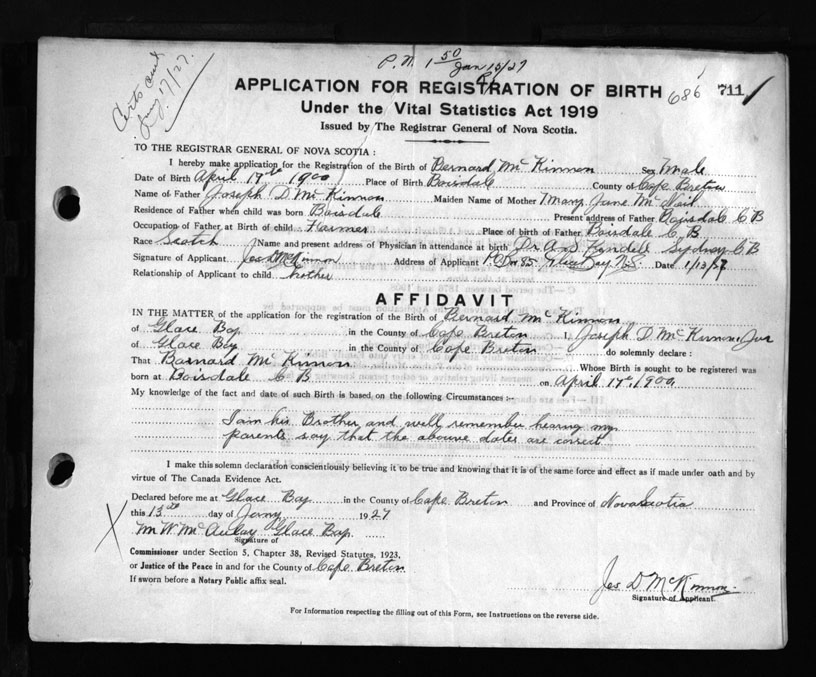 Certs sent
Jany. 17/27.
P.N. 1 50 Jan 15/27
APPLICATION FOR REGISTRATION OF BIRTH 686 711
Under the Vital Statistics Act 1919
Issued by The Registrar General of Nova Scotia.
TO THE REGISTRAR GENERAL OF NOVA SCOTIA :
I hereby make application for the Registration of the Birth of Bernard McKinnon Sex Male
Date of Birth April 17th 1900 Place of Birth Boisdale County of Cape Breton
Name of Father Joseph D. McKinnon Maiden Name of Mother Mary Jane McNeil
Residence of Father when child was born Boisdale Present address of Father Boisdale C B
Occupation of Father at Birth of child Farmer Place of birth of Father Boisdale C B
Race Scotch Name and present address of Physician in attendance at birth Dr. Sydney C B
Signature of Applicant Jos D McKinnon Address of Applicant Box 85 Glace Bay N.S. Date 1/13/27
Relationship of Applicant to child brother
AFFIDAVIT
IN THE MATTER of the application for the registration of the Birth of Bernard McKinnon
of Glace Bay in the County of Cape Breton I, Joseph D. McKinnon Jnr
of Glace Bay in the County of Cape Breton do solemnly declare :
That Barnard McKinnon Whose Birth is sought to be registered was
born at Boisdale C B on April 17th 1900
My knowledge of the fact and date of such Birth is based on the following Circumstances :-
I am his Brother and well remember hearing my
parents say that the abouve dates are correct
I make this solemn declaration conscientiously believing it to be true and knowing that it is of the same force and effect as if made under oath and by
virtue of The Canada Evidence Act.
Declared before me at Glace Bay in the County of Cape Breton and Province of Nova Scotia
this 13th day of Jany 1927
Wm W McAulay Glace Bay
Signature of
Commissioner under Section 5, Chapter 38, Revised Statutes, 1923,
or Justice of the Peace in and for the County of Cape Breton
If sworn before a Notary Public affix seal.
Jos D McKinnon
Signature of Applicant.
For Information respecting the filling out of this Form, see Instructions on the reverse side.